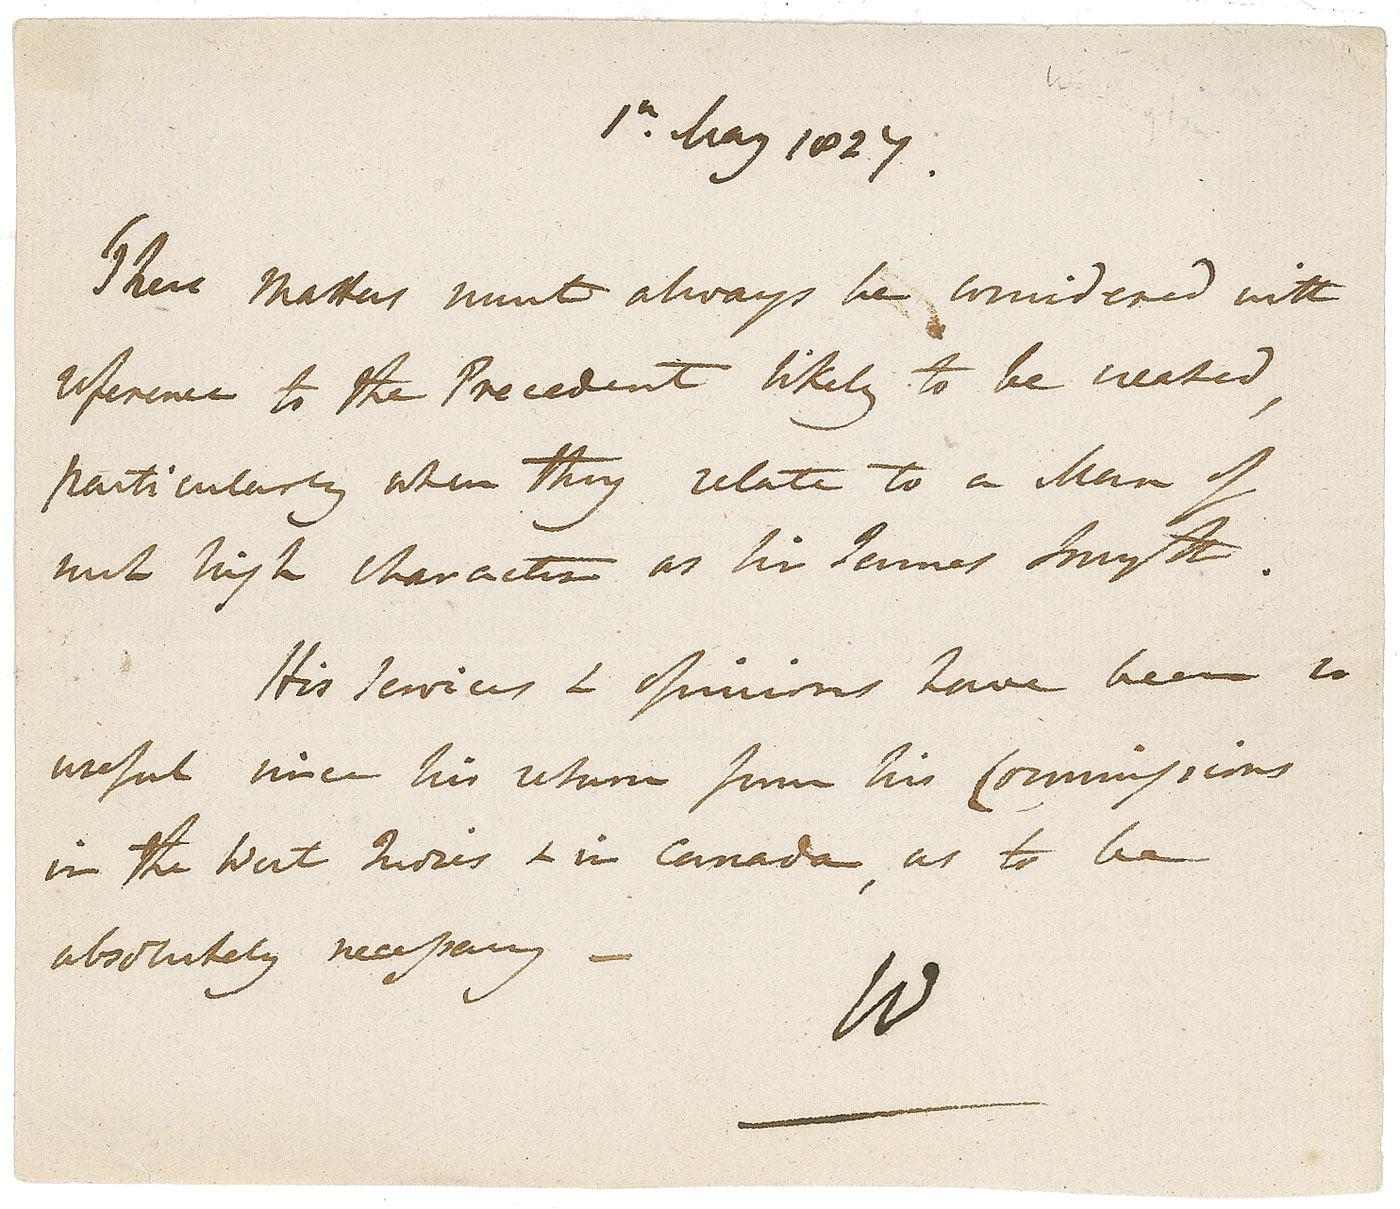 1st. May 1827.
These matters must always be considered with
reference to the Precedent likely to be created,
particularly when they relate to a Man of
such high character as Sir James Smyth.
His Services & opinions have been so
useful since his return from his Commissions
in the West Indies & in Canada, as to be
absolutely necessary —
W